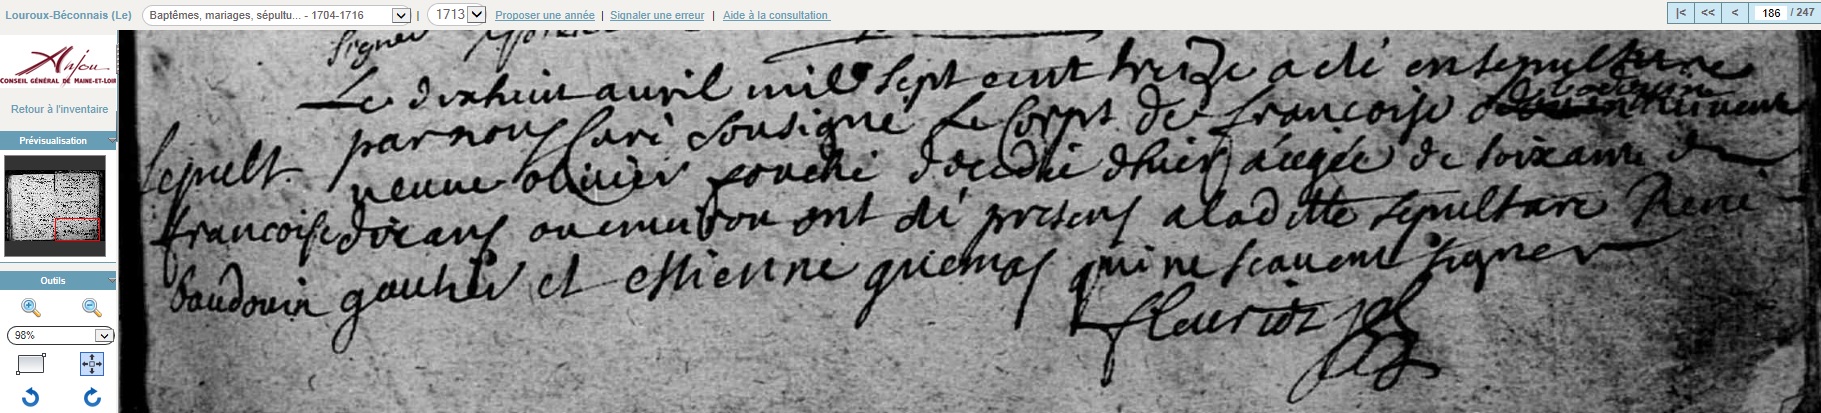 Louroux-Béconnais (Le)
Baptêmes, mariages, sépultu... - 1704-1716
|
1713
Proposer une année | Signaler une erreur | Aide à la consultation
|< << < 186 / 247
Anjou
CONSEIL GÉNÉRAL DE MAINE-ET-LOIR
Retour à l'inventaire
Prévisualisation
Outils
98%
signer
Le dixhuit auril mil sept cent treize a été ensepulture
par nous curé sousigné Le Corps de francoise
veuue oliuier fouché decedée d'hier aageé de soixante et
dix ans ou enuiron ont été presens a la ditte sepulture René
gautier et estienne qui ne scauent signer
fleuriot
sepult.
francoise
baudouin